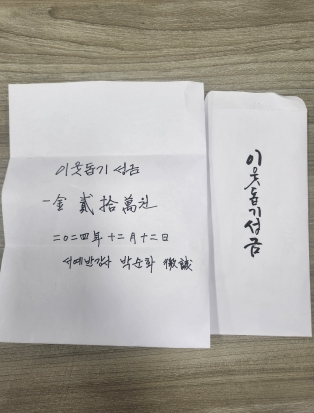 이웃돕기 성금
一金 貳拾萬원
二〇二四年 十二月十二日
서예반강사 박순화 微誠
이웃돕기성금